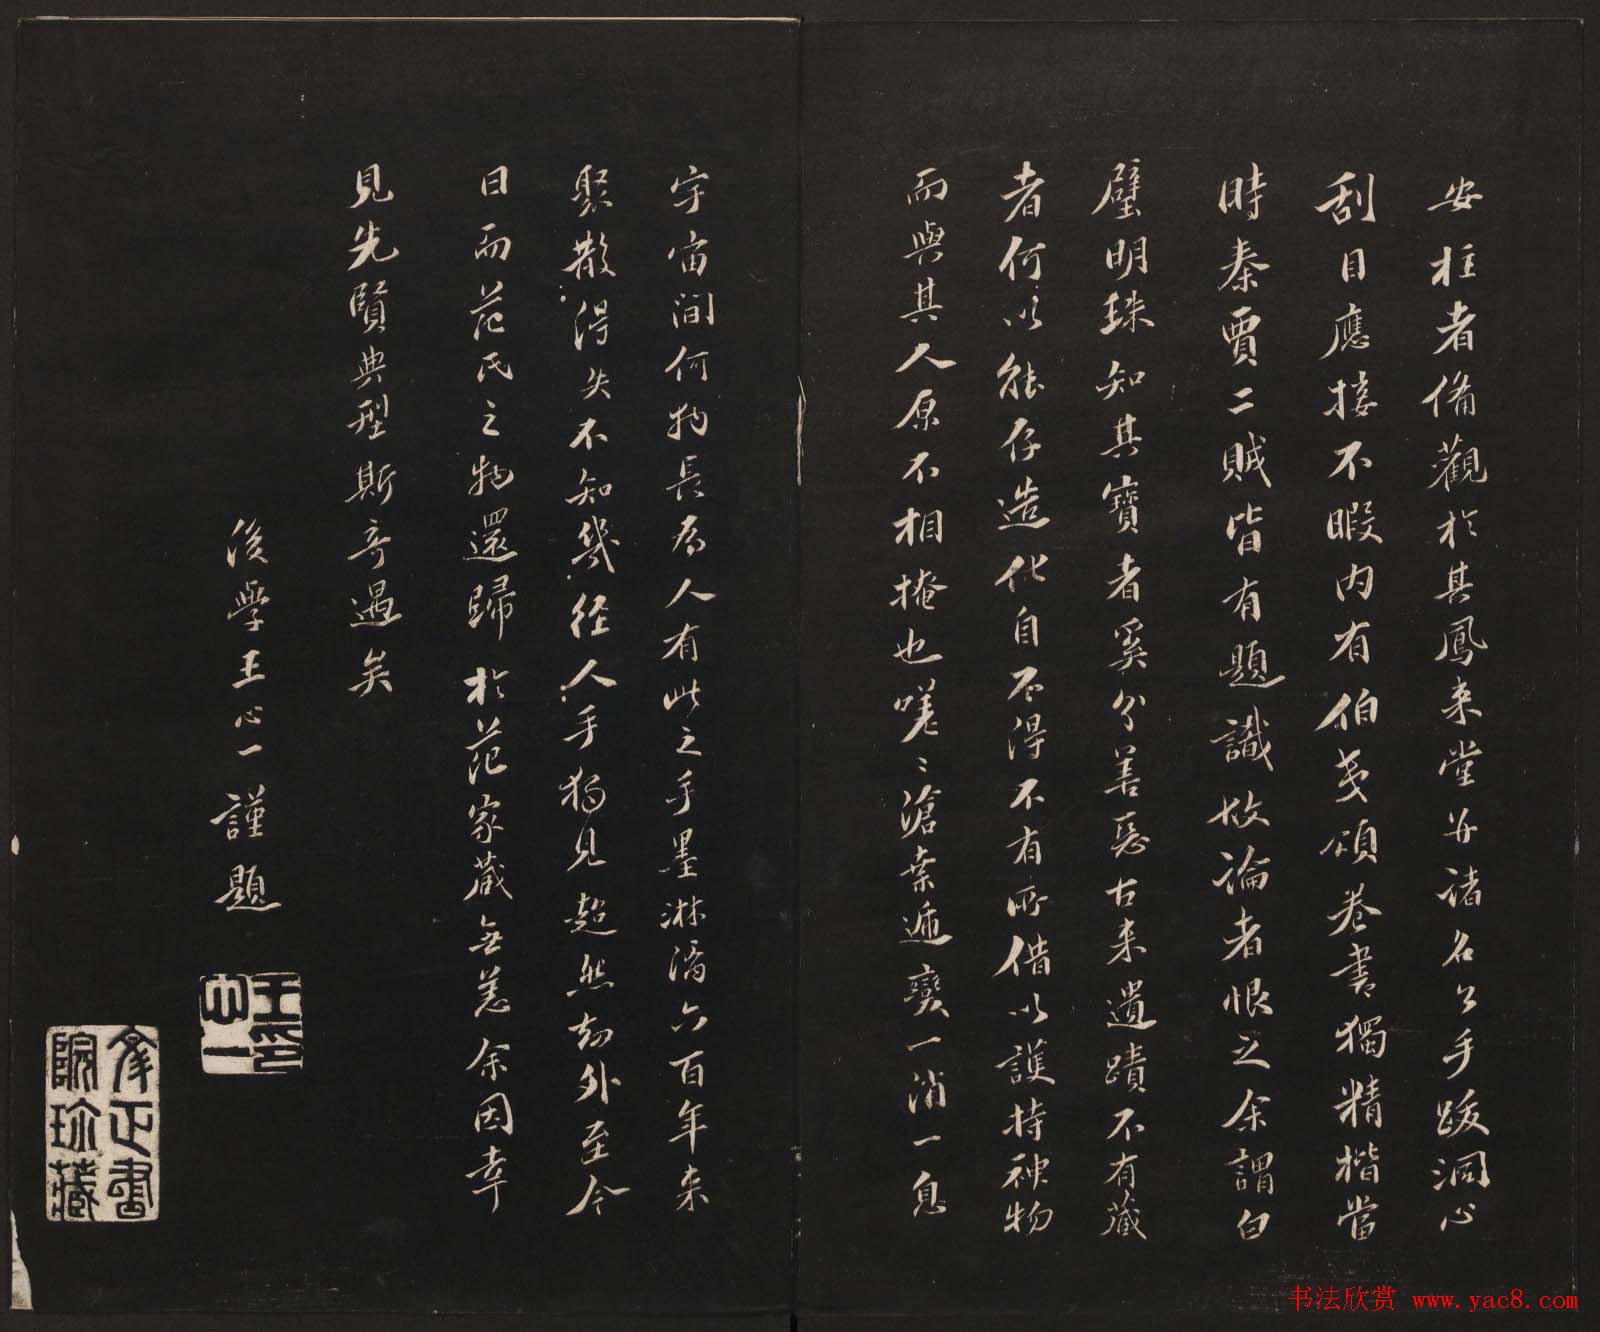 安柱者備觀於其鳳来堂并諸名公手跋洞心
刮目應接不暇内有伯夷頌卷書獨精楷當
時秦賈二賊皆有題識故論者恨之余謂白
璧明珠知其寶者奚分善惡古来遺蹟不有藏
者何以能存造化自不得不有所借以護持神物
而與其人原不相掩也嗟〻滄桑遞變一消一息
宇宙間何物長爲人有此之手墨淋漓六百年来
聚散得失不知幾經人手獨見超然劫外至今
日而范氏之物還歸於范家藏無恙余因幸
見先賢典型斯奇遇矣
後學王心一謹題
王心一印
文正書院珍藏
书法欣赏 www.yac8.com